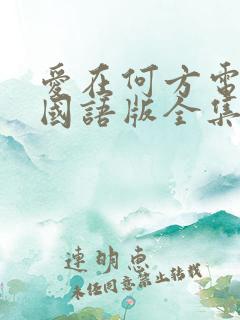 愛在何方電
國語版全集
連明惠
未经同意禁止转载